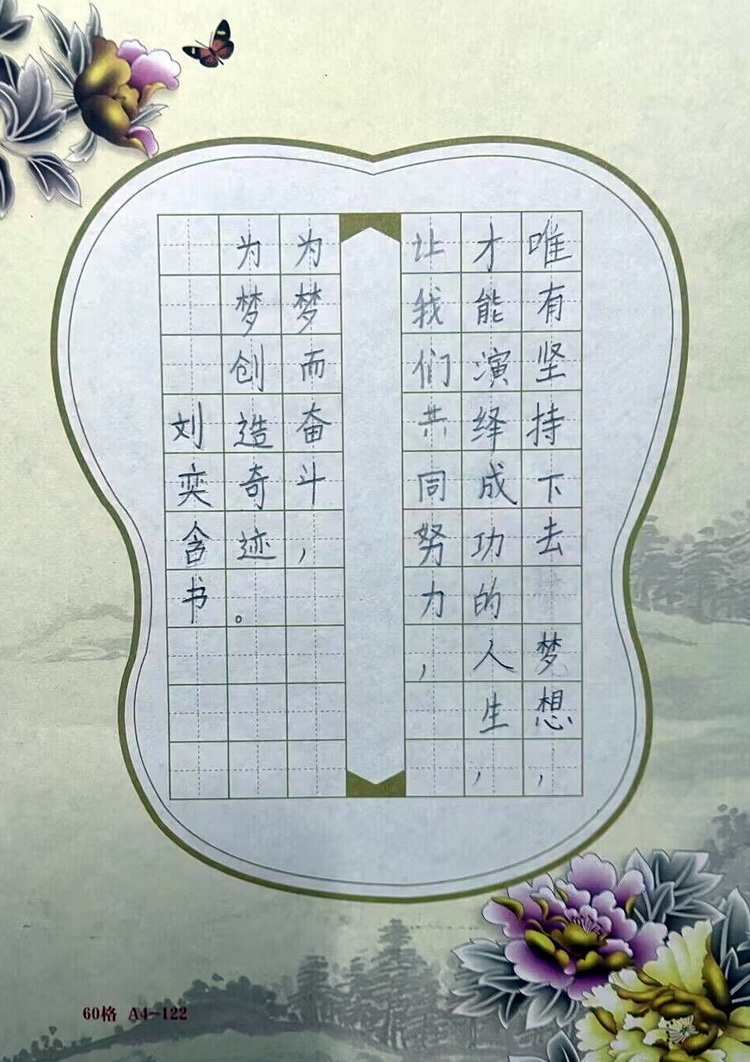 唯有坚持下去 梦想，
才能演绎成功的人生，
让我们共同努力，
为梦而奋斗，
为梦创造奇迹。
刘奕含书
60格 A4-122